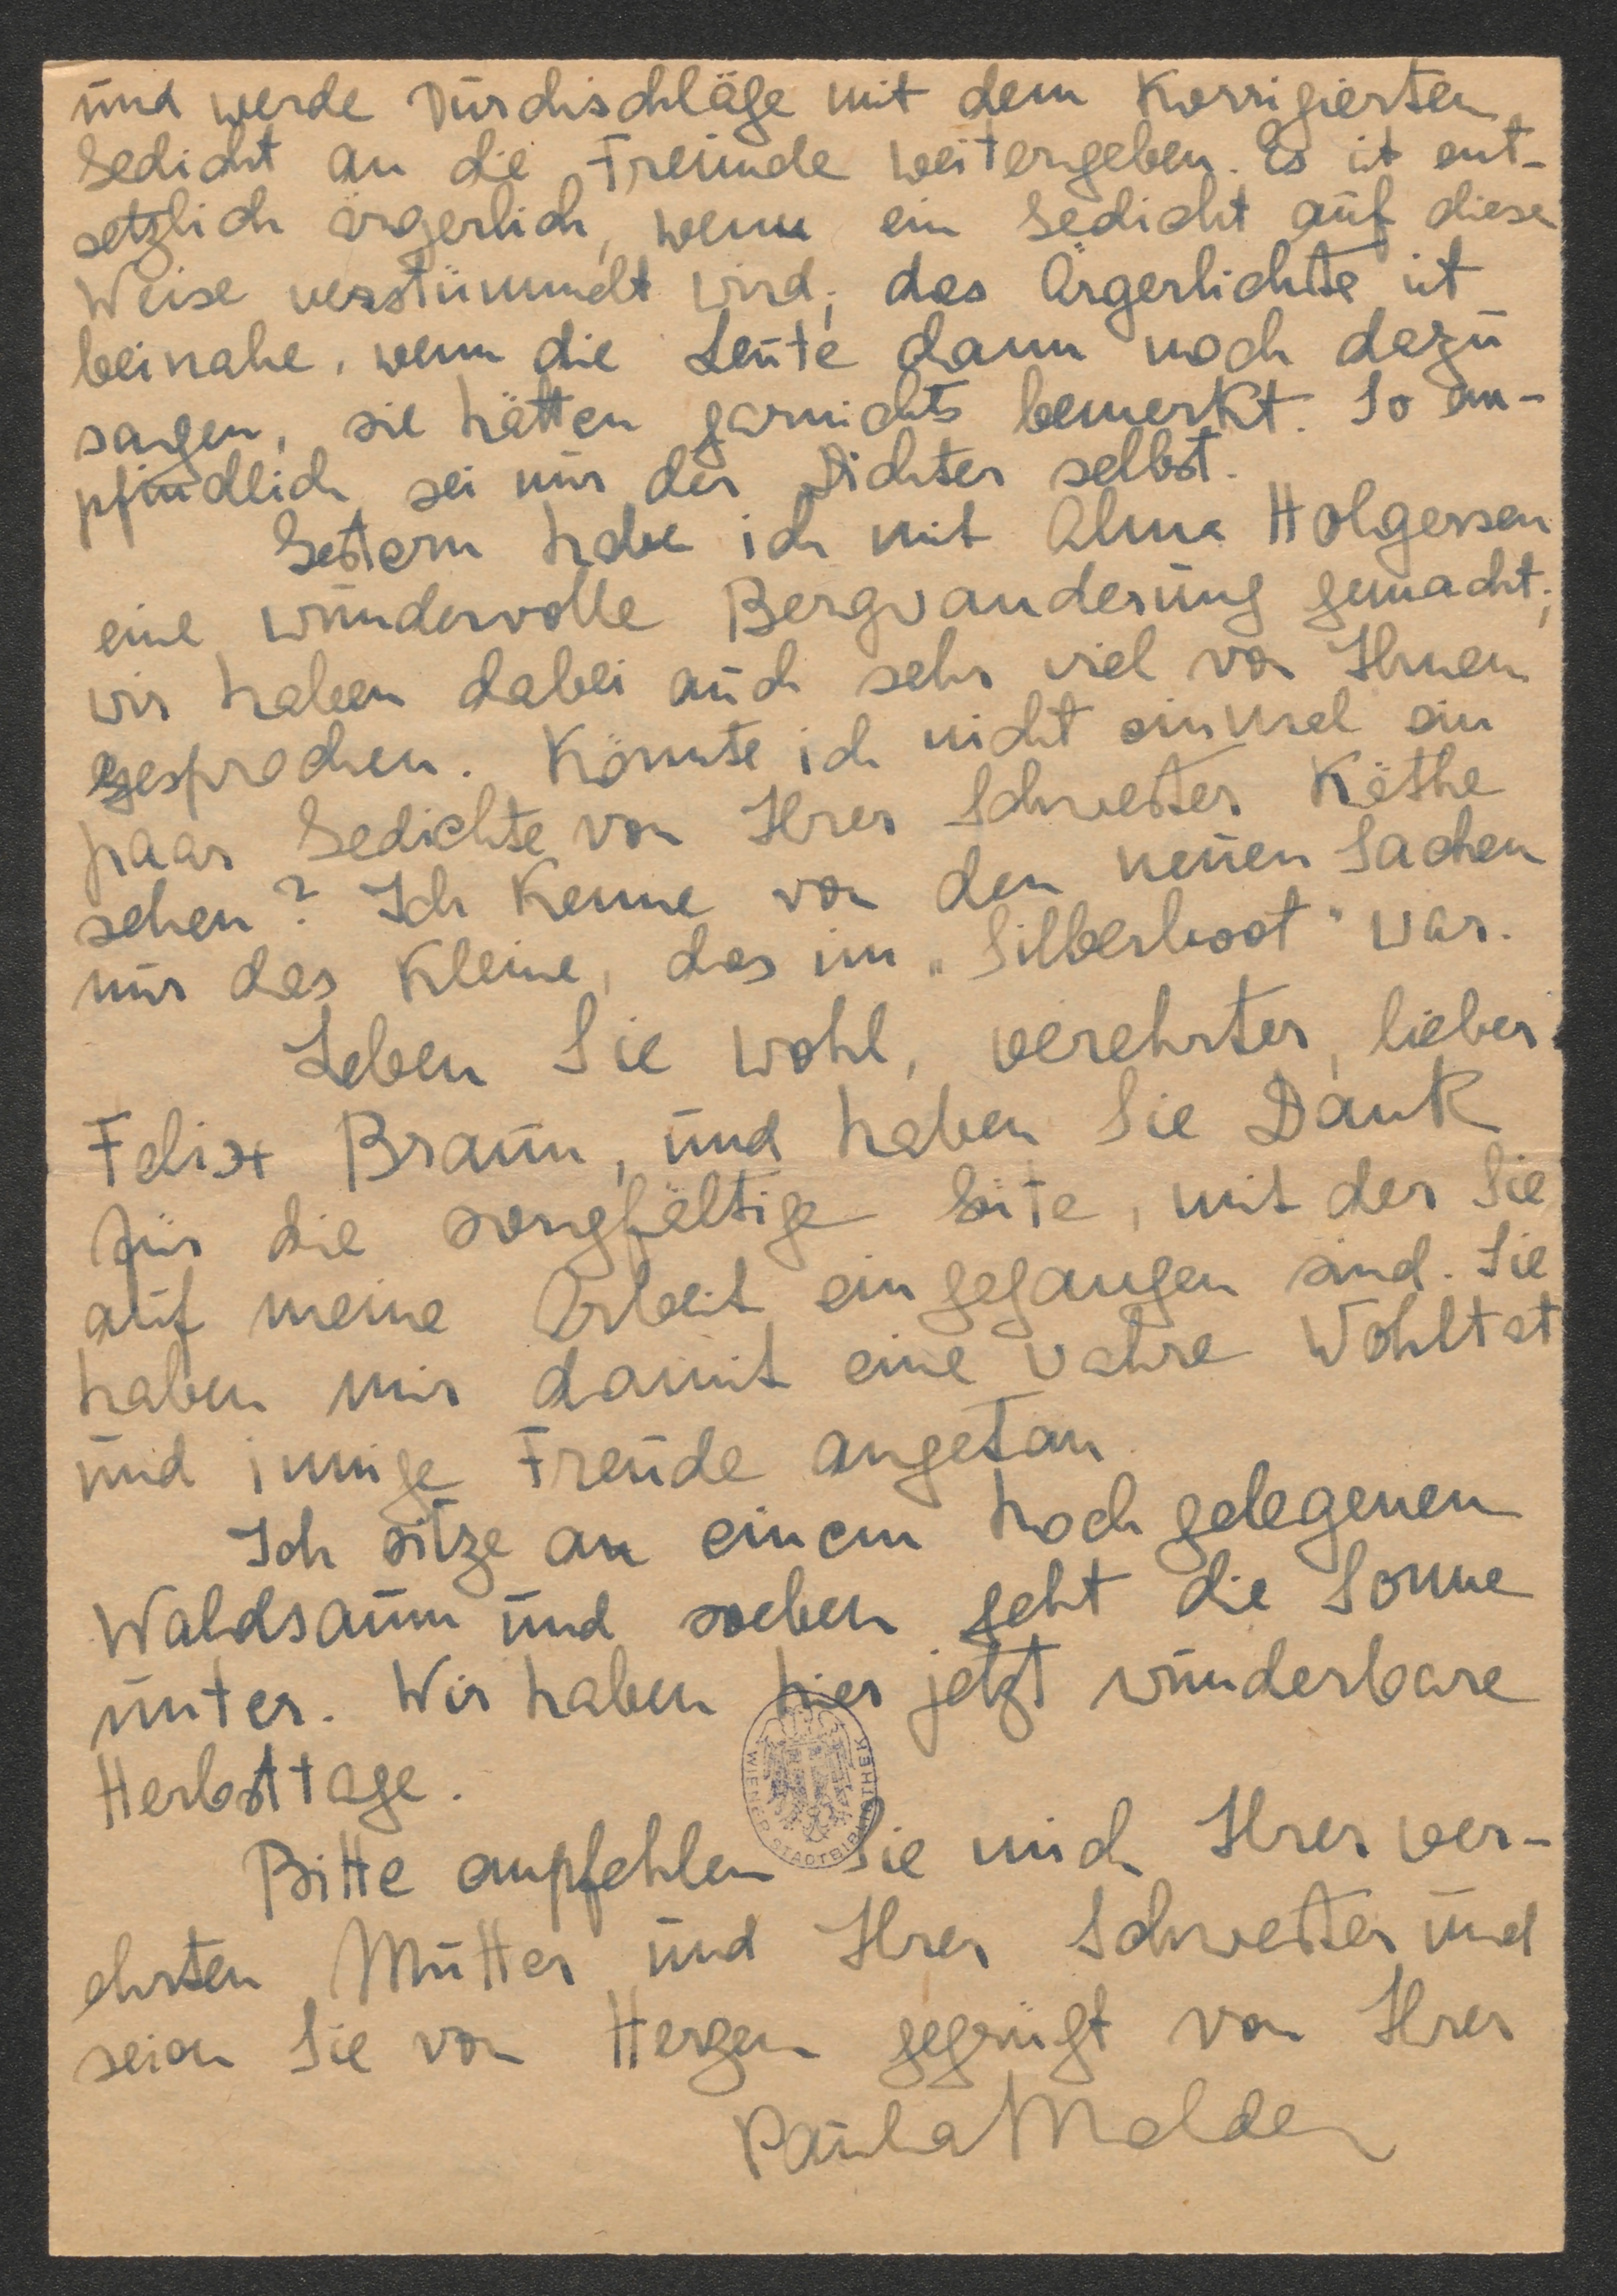 und werde Durchschläge mit dem korrigierten
Gedicht an die Freunde weitergeben. Es ist ent-
setzlich ärgerlich, wenn ein Gedicht auf diese
Weise verstümmelt wird; das Ärgerlichste ist
beinahe, wenn die Leute dann noch dazu
sagen, sie hätten garnichts bemerkt. So em-
pfindlich sei nur der Dichter selbst.
Gestern habe ich mit Alma Holgersen
eine wundervolle Bergwanderung gemacht;
wir haben dabei auch sehr viel von Ihnen
gesprochen. Könnte ich nicht einmal ein
paar Gedichte von Ihrer Schwester Käthe
sehen? Ich kenne von den neuen Sachen
nur das Kleine, das im „Silberboot" war.
Leben Sie wohl, verehrter, lieber
Felix Braun, und haben Sie Dank
für die sorgfältige Güte, mit der Sie
auf meine Arbeit eingegangen sind. Sie
haben mir damit eine wahre Wohltat
und innige Freude angetan.
Ich sitze an einem hoch gelegenen
Waldsaum und soeben geht die Sonne
unter. Wir haben hier jetzt wunderbare
Herbsttage.
WIENER STADTBIBLIOTHEK
Bitte empfehlen Sie mich Ihrer ver-
ehrten Mutter und Ihrer Schwester und
seien Sie von Herzen gegrüßt von Ihrer
Paula Molden